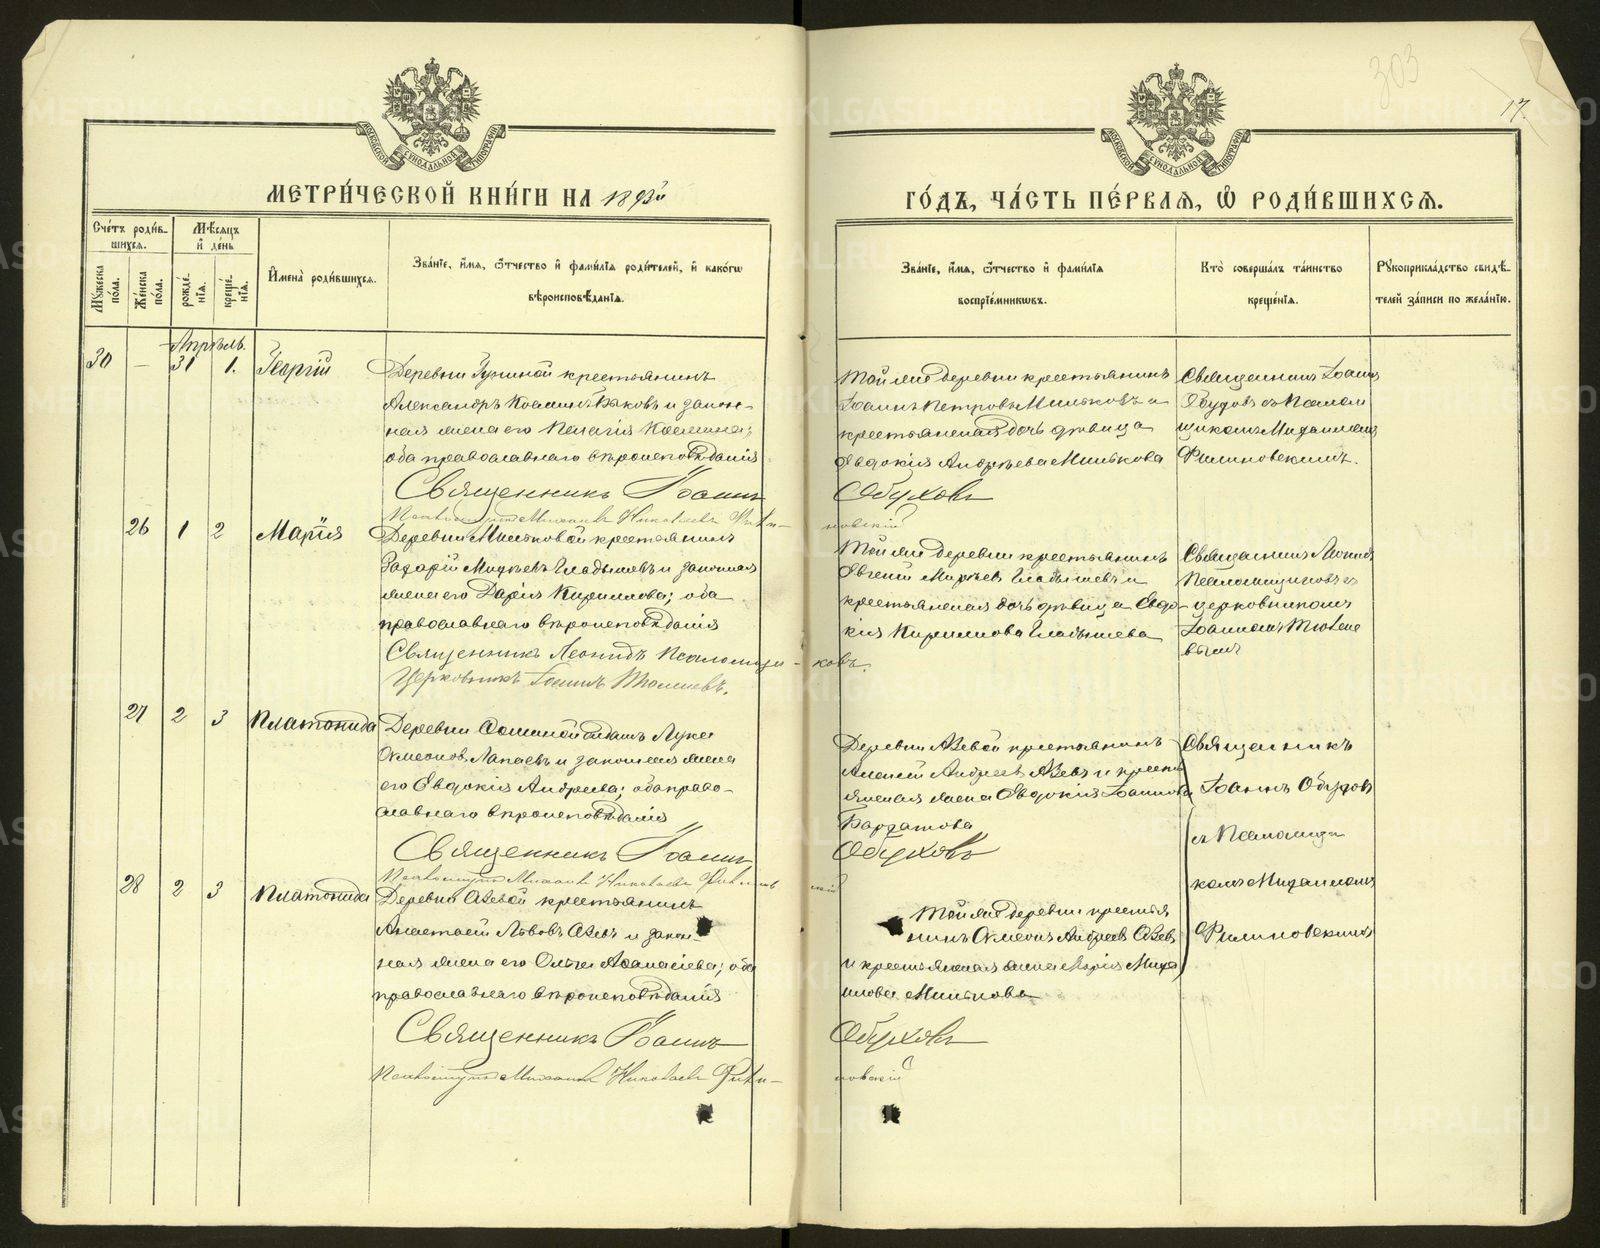 303
17.
МЕТРИ́ЧЕСКОЙ КНИ́ГИ НА 1893й
ГО́ДЪ, ЧА́СТЬ ПЕ́РВАѦ, Ѡ҆ РОДИ́ВШИХСѦ.
МОСКОВСКОЙ СѴНОДАЛЬНОЙ ТИПОГРАФІИ
МОСКОВСКОЙ СѴНОДАЛЬНОЙ ТИПОГРАФІИ
Сче́тъ роди́в-
шихсѧ.
Мѣ́сѧцъ
и҆ де́нь
Мꙋ́жеска по́ла.
Же́нска по́ла.
рожде́нїѧ.
креще́нїѧ.
И҆мена̀ роди́вшихсѧ.
Зва́нїе, и҆́мѧ, ѻ҆́тчество и҆ фами́лїѧ роди́телей, и҆ како́гѡ
вѣроисповѣ́данїѧ.
Зва́нїе, и҆́мѧ, ѻ҆́тчество и҆ фами́лїѧ
воспрїе́мникѡвъ.
Кто̀ соверша́лъ та́инство
креще́нїѧ.
Рꙋкоприкла́дство свидѣ́-
телей за́писи по жела́нїю.
Апрѣль.
30 — 31 1. Георгій
Деревни Гуниной крестьянинъ
Александръ Косминъ Быковъ и закон-
ная жена его Пелагія Космина;
оба православнаго вѣроисповѣданія
Священникъ Іоаннъ
Псаломщикъ Михаилъ Николаевъ Фили-
Той же деревни крестьянинъ
Іоаннъ Петровъ Мильковъ и
крестьянская дочь дѣвица
Евдокія Андреева Милькова
Обуховъ
новскій
Священникъ Іоаннъ
Обуховъ съ Псалом
щикомъ Михаиломъ
Филиновскимъ.
26 1 2 Марія
Деревни Мильковой крестьянинъ
Захарій Гладышевъ и законная
жена его Дарія Кириллова; оба
православнаго вѣроисповѣданія
Священникъ Леонидъ Псаломщи-
ковъ.
Церковникъ Іоаннъ
Той же деревни крестьянинъ
Евгеній Гладышевъ и
крестьянская дочь дѣвица Евдо-
кія Кириллова Гладышева
Священникъ Леонидъ
Псаломщиковъ съ
церковникомъ
Іоанномъ
вымъ
27 2 3 Платонида
Деревни солдатъ Лука
Лапаевъ и законная жена
его Евдокія Андреева; оба право-
славнаго вѣроисповѣданія
Священникъ Іоаннъ
Псаломщикъ Михаилъ Николаевъ Филинов
скій
Деревни Азевой крестьянинъ
Алексій Андреевъ Азевъ и крестья
янская жена Евдокія Іоаннова
Бархатова
Обуховъ
Священникъ
Іоаннъ Обуховъ
съ Псаломщи
комъ Михаиломъ
Филиновскимъ
28 2 3 Платонида
Деревни Азевой крестьянинъ
Анастасій Львовъ Азевъ и закон-
ная жена его Ольга Аѳанасіева; оба
православнаго вѣроисповѣданія
Священникъ Іоаннъ
Псаломщикъ Михаилъ Николаевъ Фили-
Той же деревни крестья
нинъ Симеонъ Андреевъ Азевъ
и крестьянская жена Марія Миха
илова Милькова
Обуховъ
новскій
METRIKI.GASO-URAL.RU